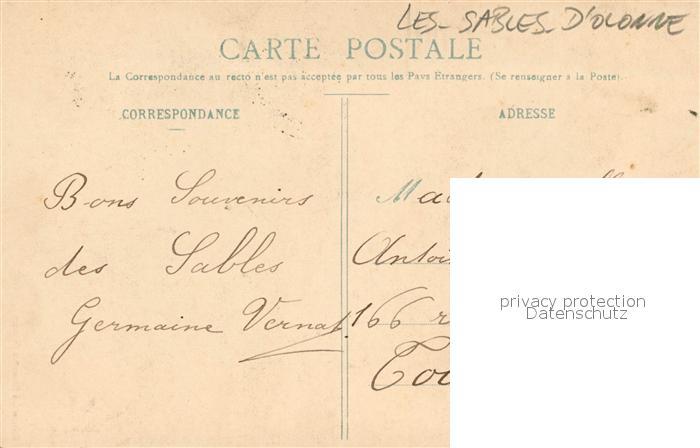 LES-SABLES-D'OLONNE
CARTE POSTALE
La Correspondance au recto n'est pas acceptée par tous les Pays Etrangers. (Se renseigner à la Poste).
CORRESPONDANCE
ADRESSE
Bons Souvenirs
des Sables
Germaine Vernat
166
privacy protection
Datenschutz